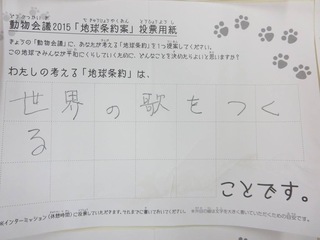 動物会議2015「地球条約案」投票用紙
きょうの「動物会議」に、あなたが考える「地球条約案」を1つ提案してください。
この地球でみんなが平和にくらしていくために、どんなことを決めたらよいと思いますか?
わたしの考える「地球条約」は、
世界の歌をつく
る
ことです。
※インターミッション(休憩時間)に投票していただきます。それまでに書いておいてください。